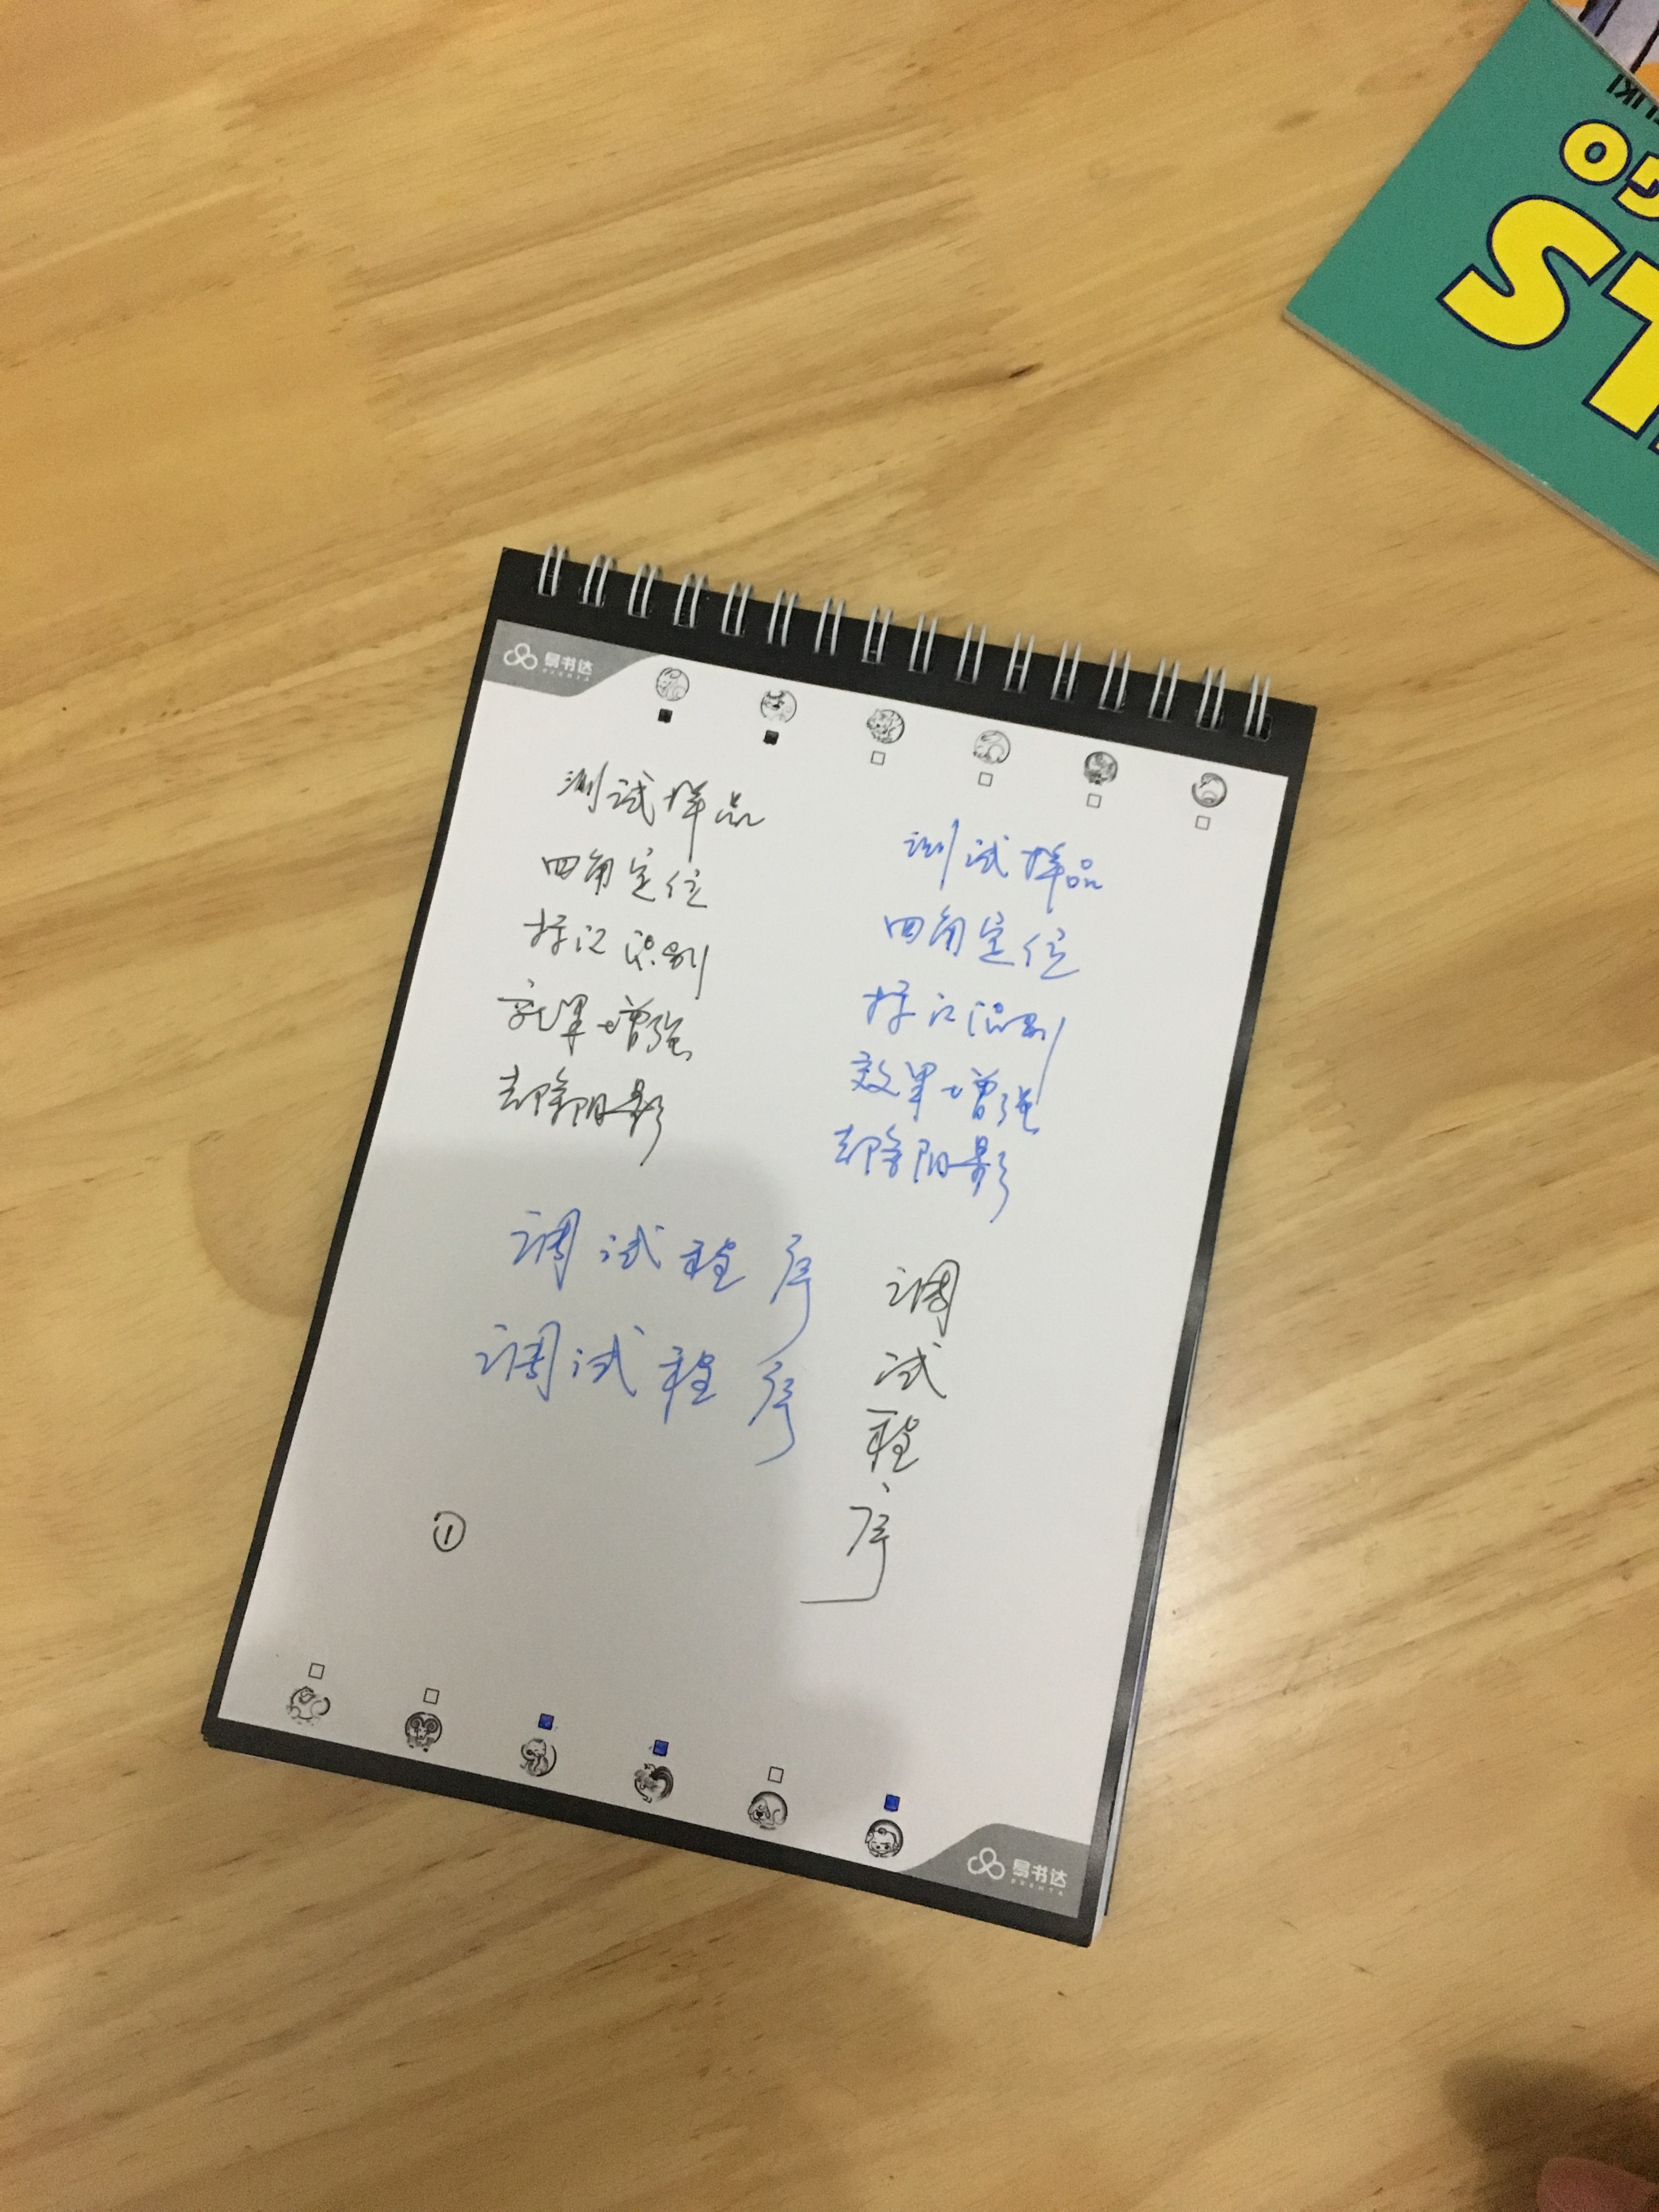 GO
ST
易书达
测试样品
四角定位
标记识别
效果增强
去除阴影
测试样品
四角定位
标记识别
效果增强
去除阴影
调试程序
调试程序
调
试
程
序
①
易书达